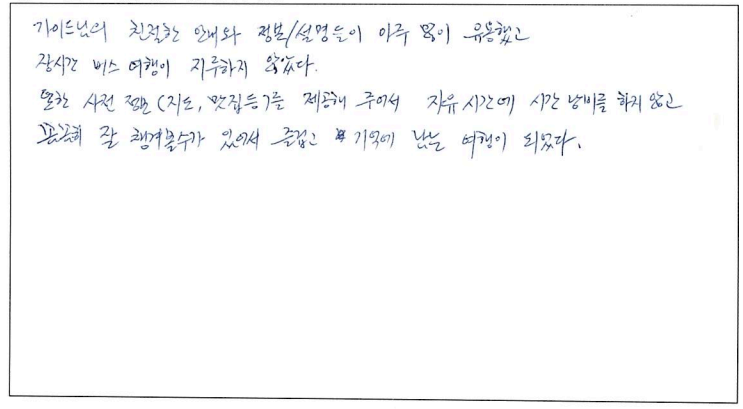 가이드님의 친절한 안내와 정보/설명들이 아주 많이 유용했고
장시간 버스 여행이 지루하지 않았다.
또한 사전 정보(지도, 맛집등)를 제공해 주어서 자유시간에 시간 낭비를 하지 않고
꼼꼼히 잘 챙겨볼수가 있어서 즐겁고 기억에 남는 여행이 되었다.